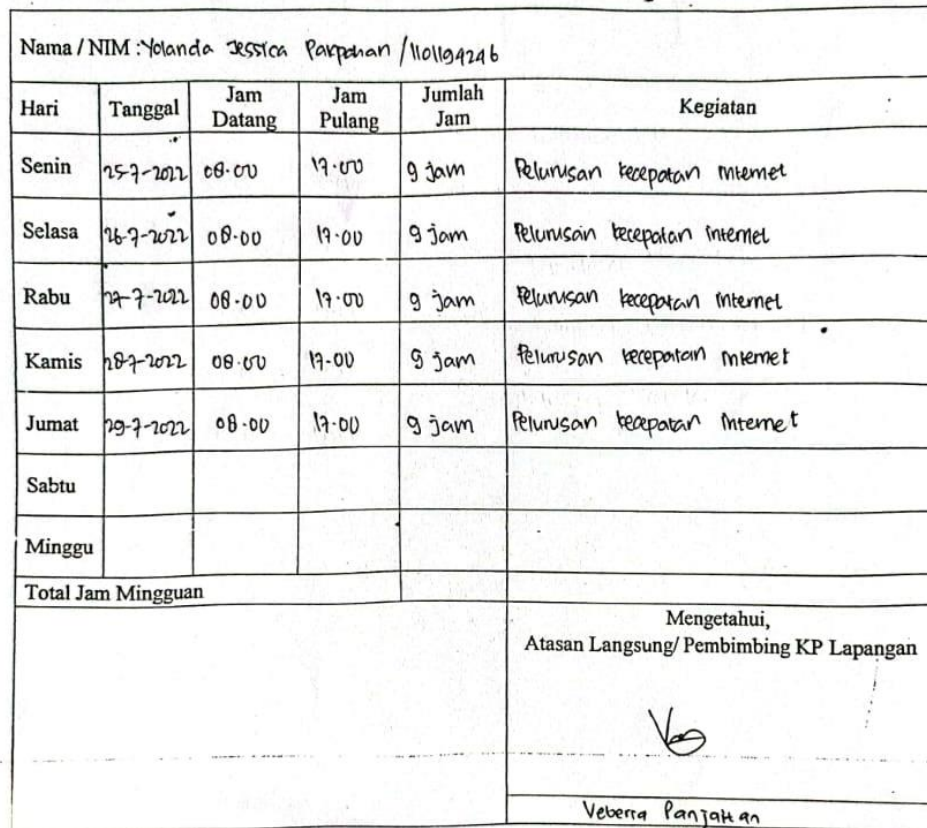 Nama / NIM : Yolanda Jessica Parpahan / 1101194246
Hari Tanggal Jam Datang Jam Pulang Jumlah Jam Kegiatan
Senin 25-7-2022 08.00 17.00 9 jam Pelurusan kecepatan internet
Selasa 26-7-2022 08.00 17.00 9 jam Pelurusan kecepatan internet
Rabu 27-7-2022 08.00 17.00 9 jam Pelurusan kecepatan internet
Kamis 28-7-2022 08.00 17.00 9 jam Pelurusan kecepatan internet
Jumat 29-7-2022 08.00 17.00 9 jam Pelurusan kecepatan internet
Sabtu
Minggu
Total Jam Mingguan
Mengetahui,
Atasan Langsung/ Pembimbing KP Lapangan
Veberra Panjaitan